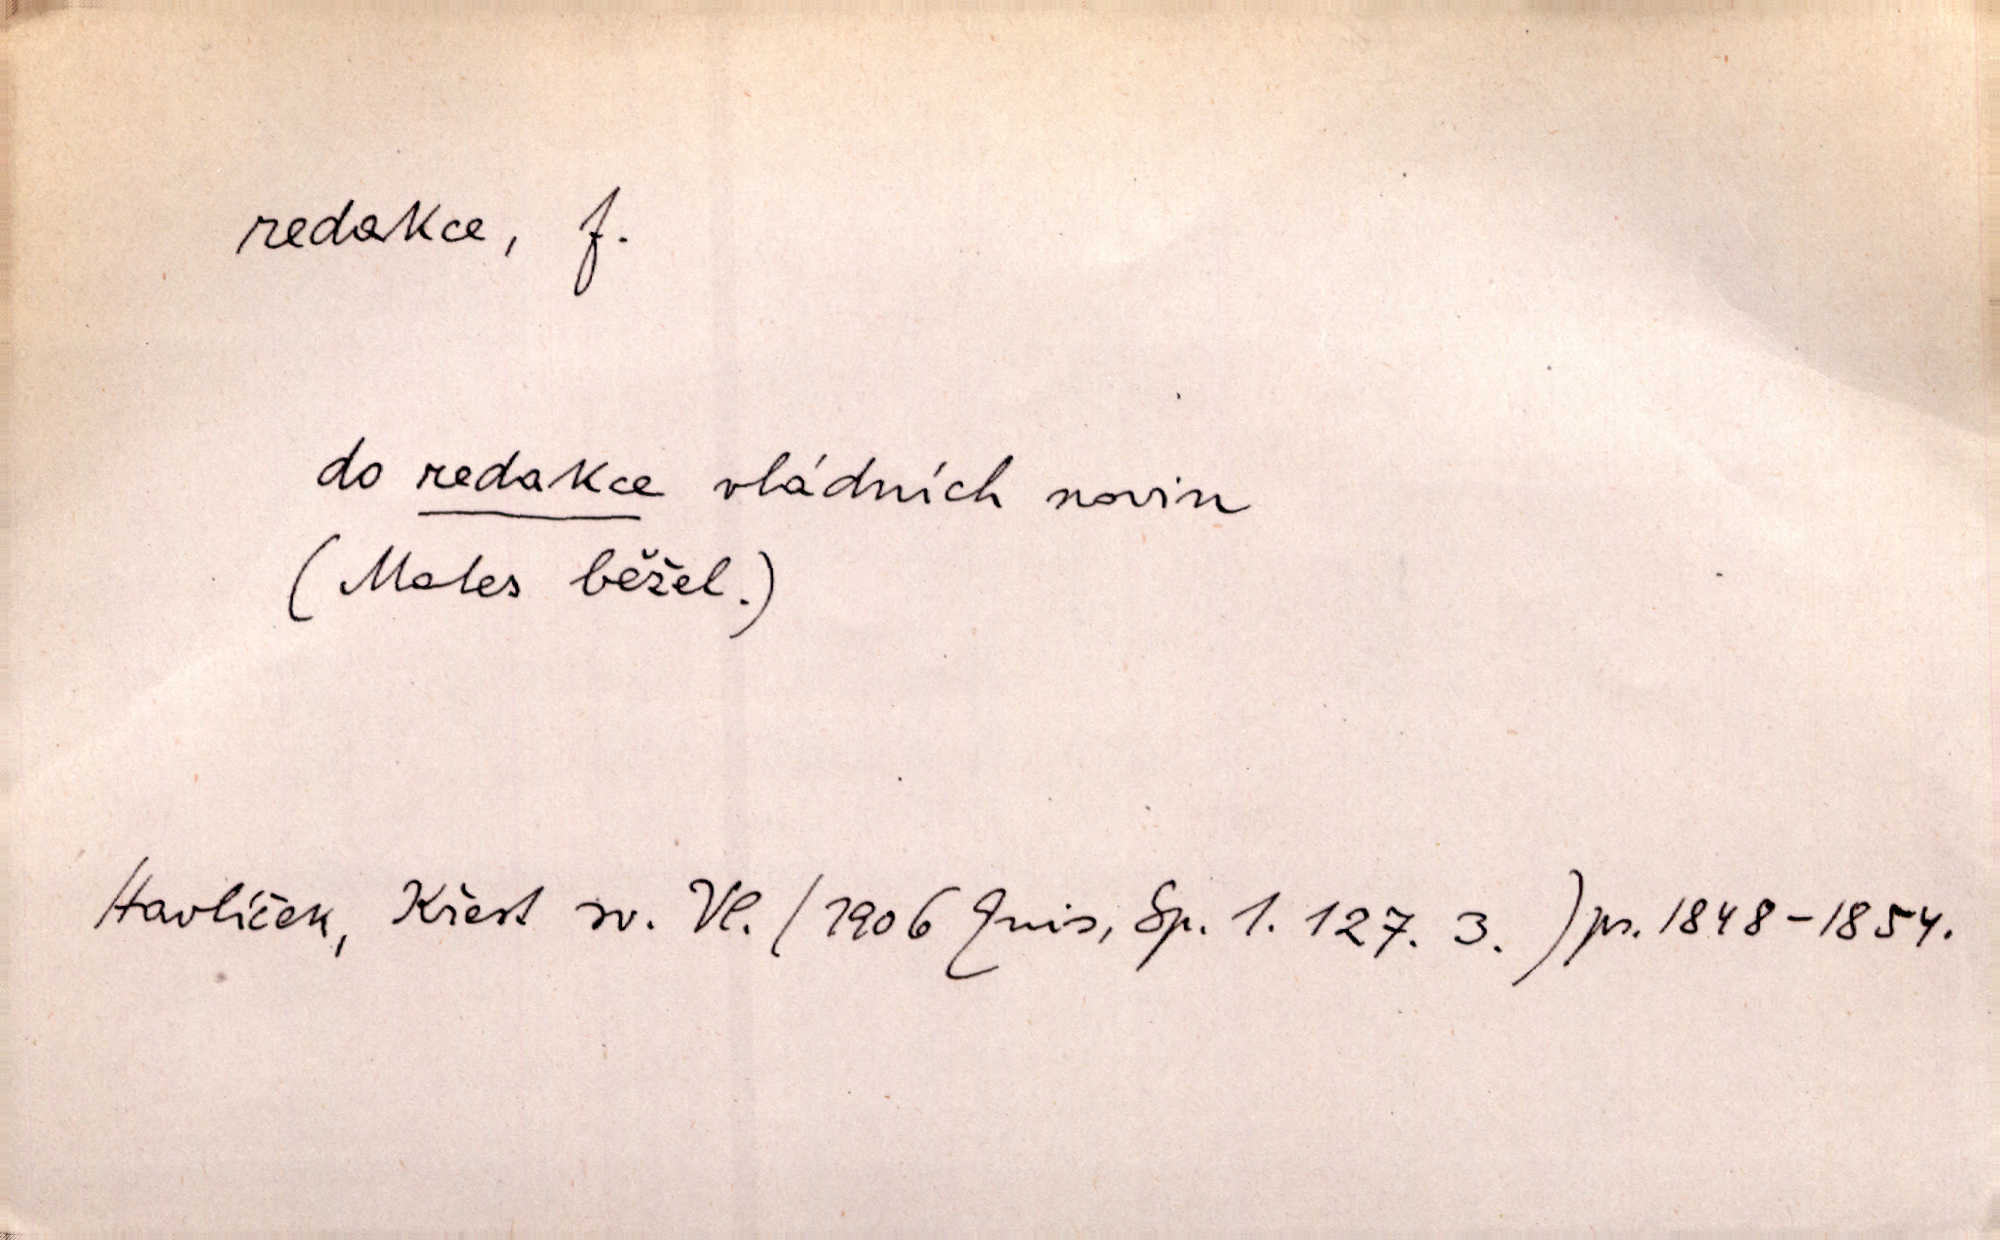 redakce, f.
do redakce vládních novin
(Males běžel.)
Havlíček, Křest sv. Vl. (1906 Quis, Sp. 1. 127. 3.) ps. 1848-1854.